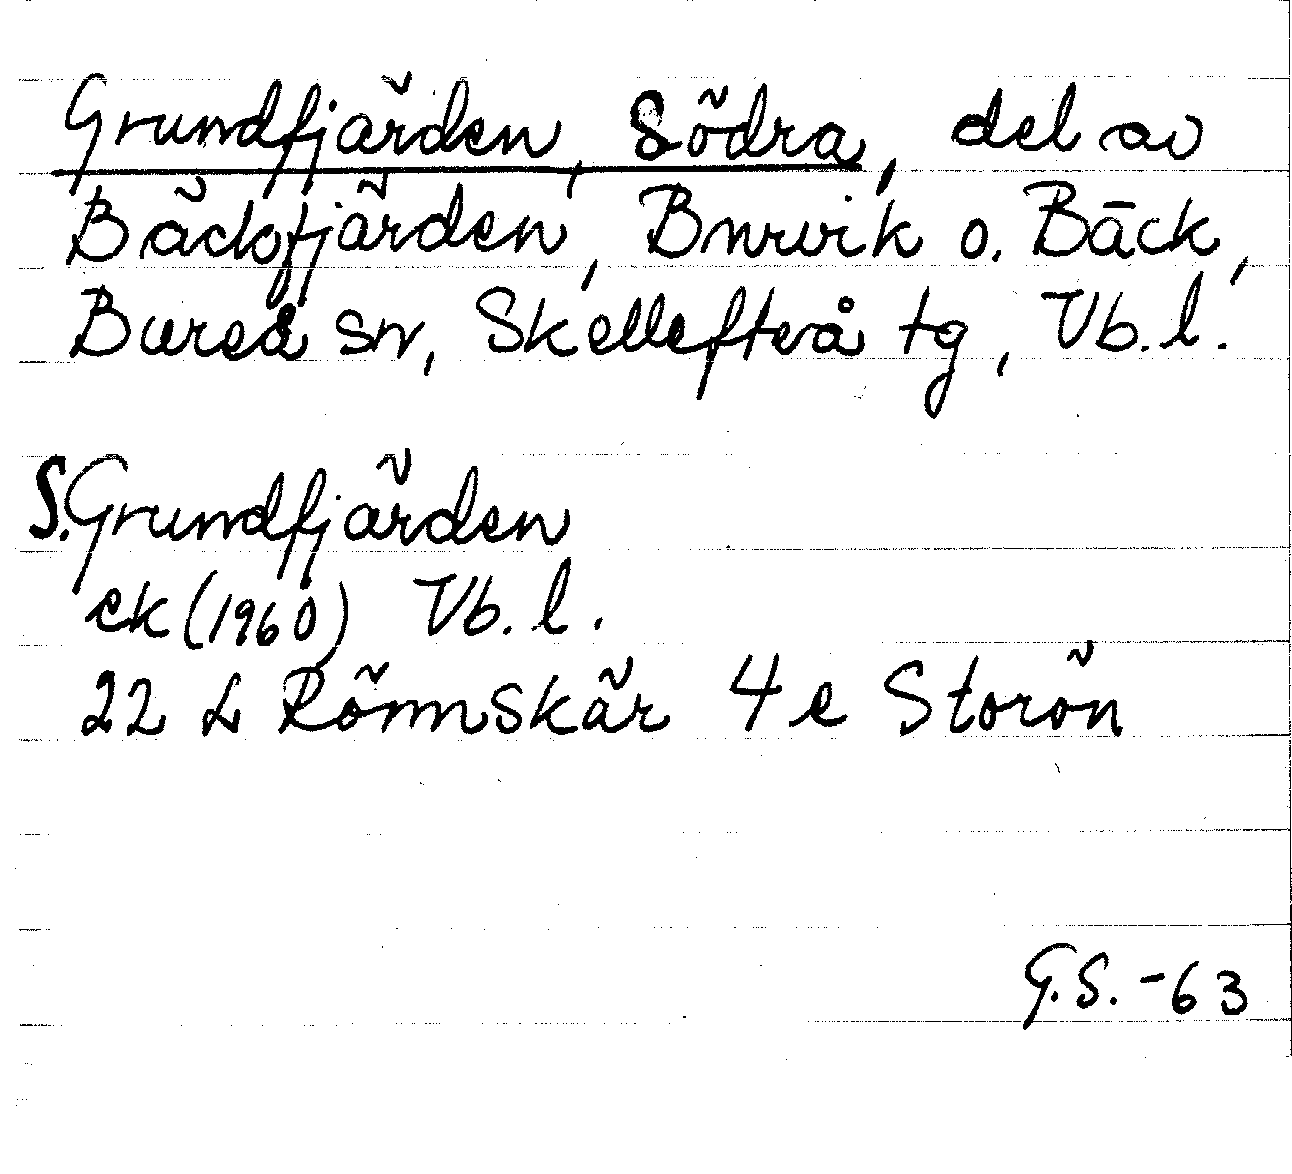 Grundfjärden, Södra, del av
Bäckfjärden, Burvik o. Bäck,
Bureå sn, Skellefteå tg, Vb.l.
S.Grundfjärden
ek (1960) Vb.l.
22 L Rönnskär 4 e Storön
G.S.-63